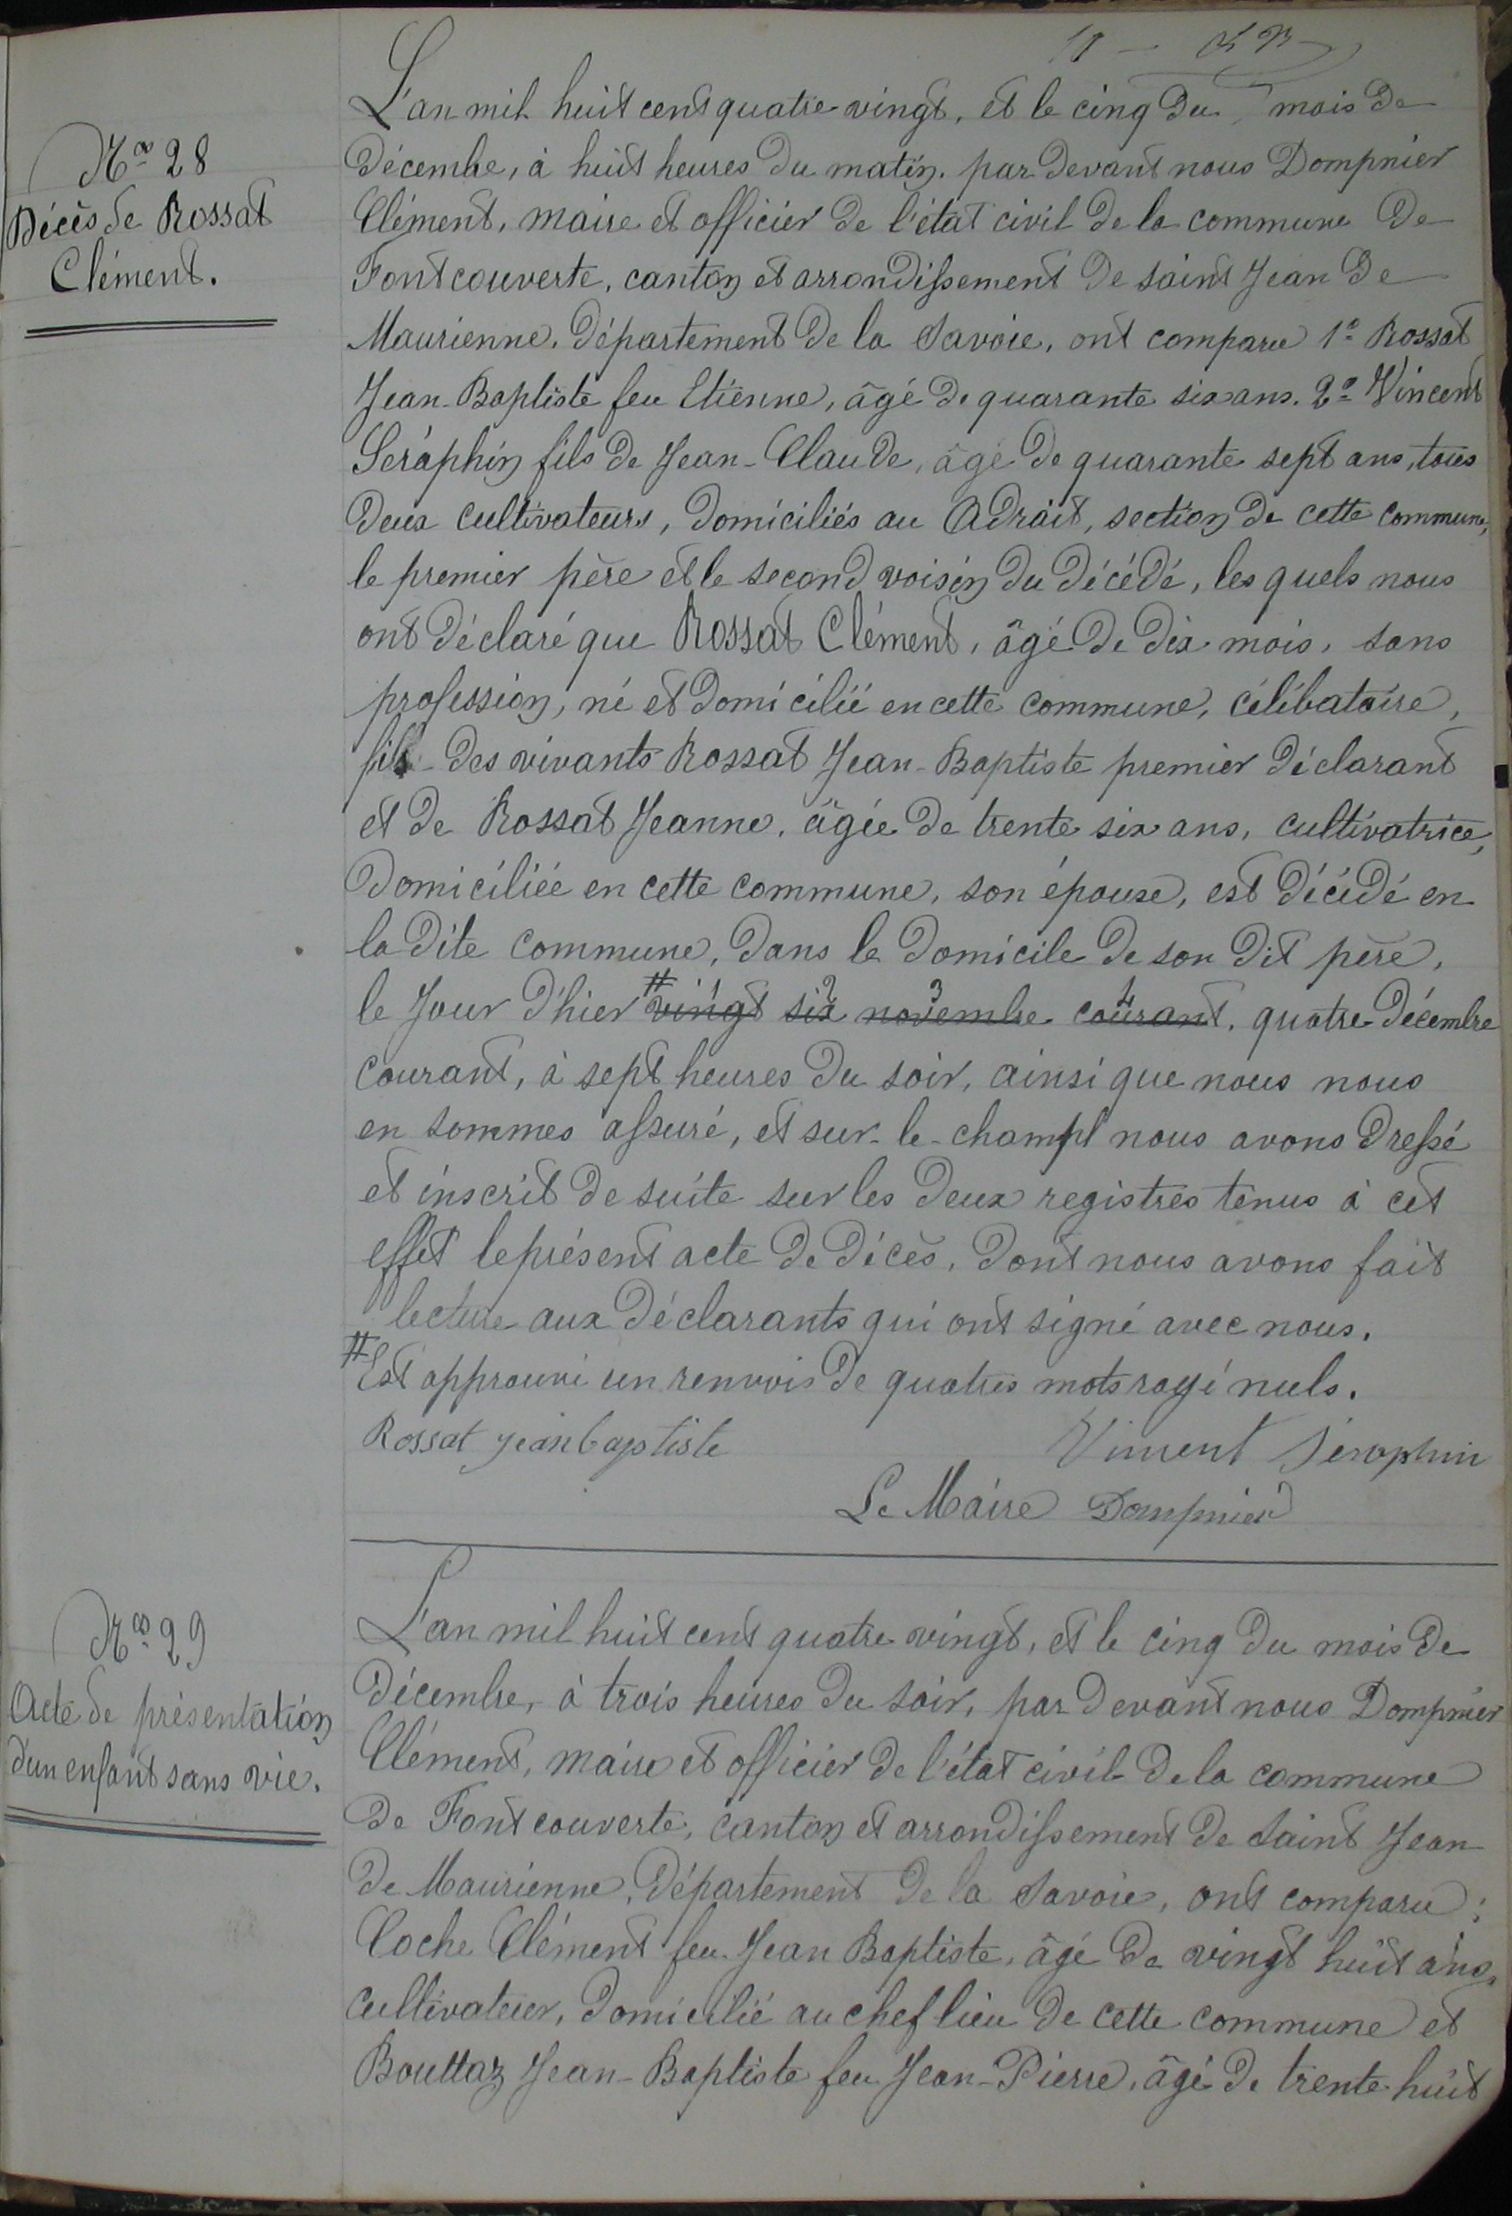 Nº 28
Décès de Rossat
Clément.
L'an mil huit cent quatre vingt, et le cinq du mois de
décembre, à huit heures du matin. par devant nous Dompnier
Clément, maire et officier de l'état civil de la commune de
Fontcouverte, canton et arrondissement de saint Jean de
Maurienne, département de la Savoie, ont comparu 1º Rossat
Jean-Baptiste feu Etienne, âgé de quarante six ans. 2º Vincent
Séraphin fils de Jean-Claude, âgé de quarante sept ans, tous
deux cultivateurs, domiciliés au Adrait, section de cette commune,
le premier père et le second voisin du décédé, les quels nous
ont déclaré que Rossat Clément, âgé de dix mois, sans
profession, né et domicilié en cette commune, célibataire,
fils des vivants Rossat Jean-Baptiste premier déclarant
et de Rossat Jeanne, âgée de trente six ans, cultivatrice,
domiciliée en cette commune, son épouse, est décédé en
la dite commune, dans le domicile de son dit père,
# 1 2 3 4
le jour d'hier vingt six novembre courant, quatre décembre
courant, à sept heures du soir, ainsi que nous nous
en sommes assuré, et sur-le-champ nous avons dressé
et inscrit de suite sur les deux registres tenus à cet
effet le présent acte de décès, dont nous avons fait
lecture aux déclarants qui ont signé avec nous.
# Est approuvé un renvois de quatres mots rayé nuls.
Rossat jean baptiste Vincent Séraphin
Le Maire Dompnier
Nº 29
Acte de présentation
d'un enfant sans vie.
L'an mil huit cent quatre vingt, et le cinq du mois de
décembre, à trois heures du soir, par devant nous Dompnier
Clément, maire et officier de l'état civil de la commune
de Fontcouverte, canton et arrondissement de Saint Jean
de Maurienne, département de la Savoie, ont comparu :
Coche Clément feu Jean Baptiste, âgé de vingt huit ans,
cultivateur, domicilié au chef lieu de cette commune et
Bouttaz Jean-Baptiste feu Jean-Pierre, âgé de trente huit